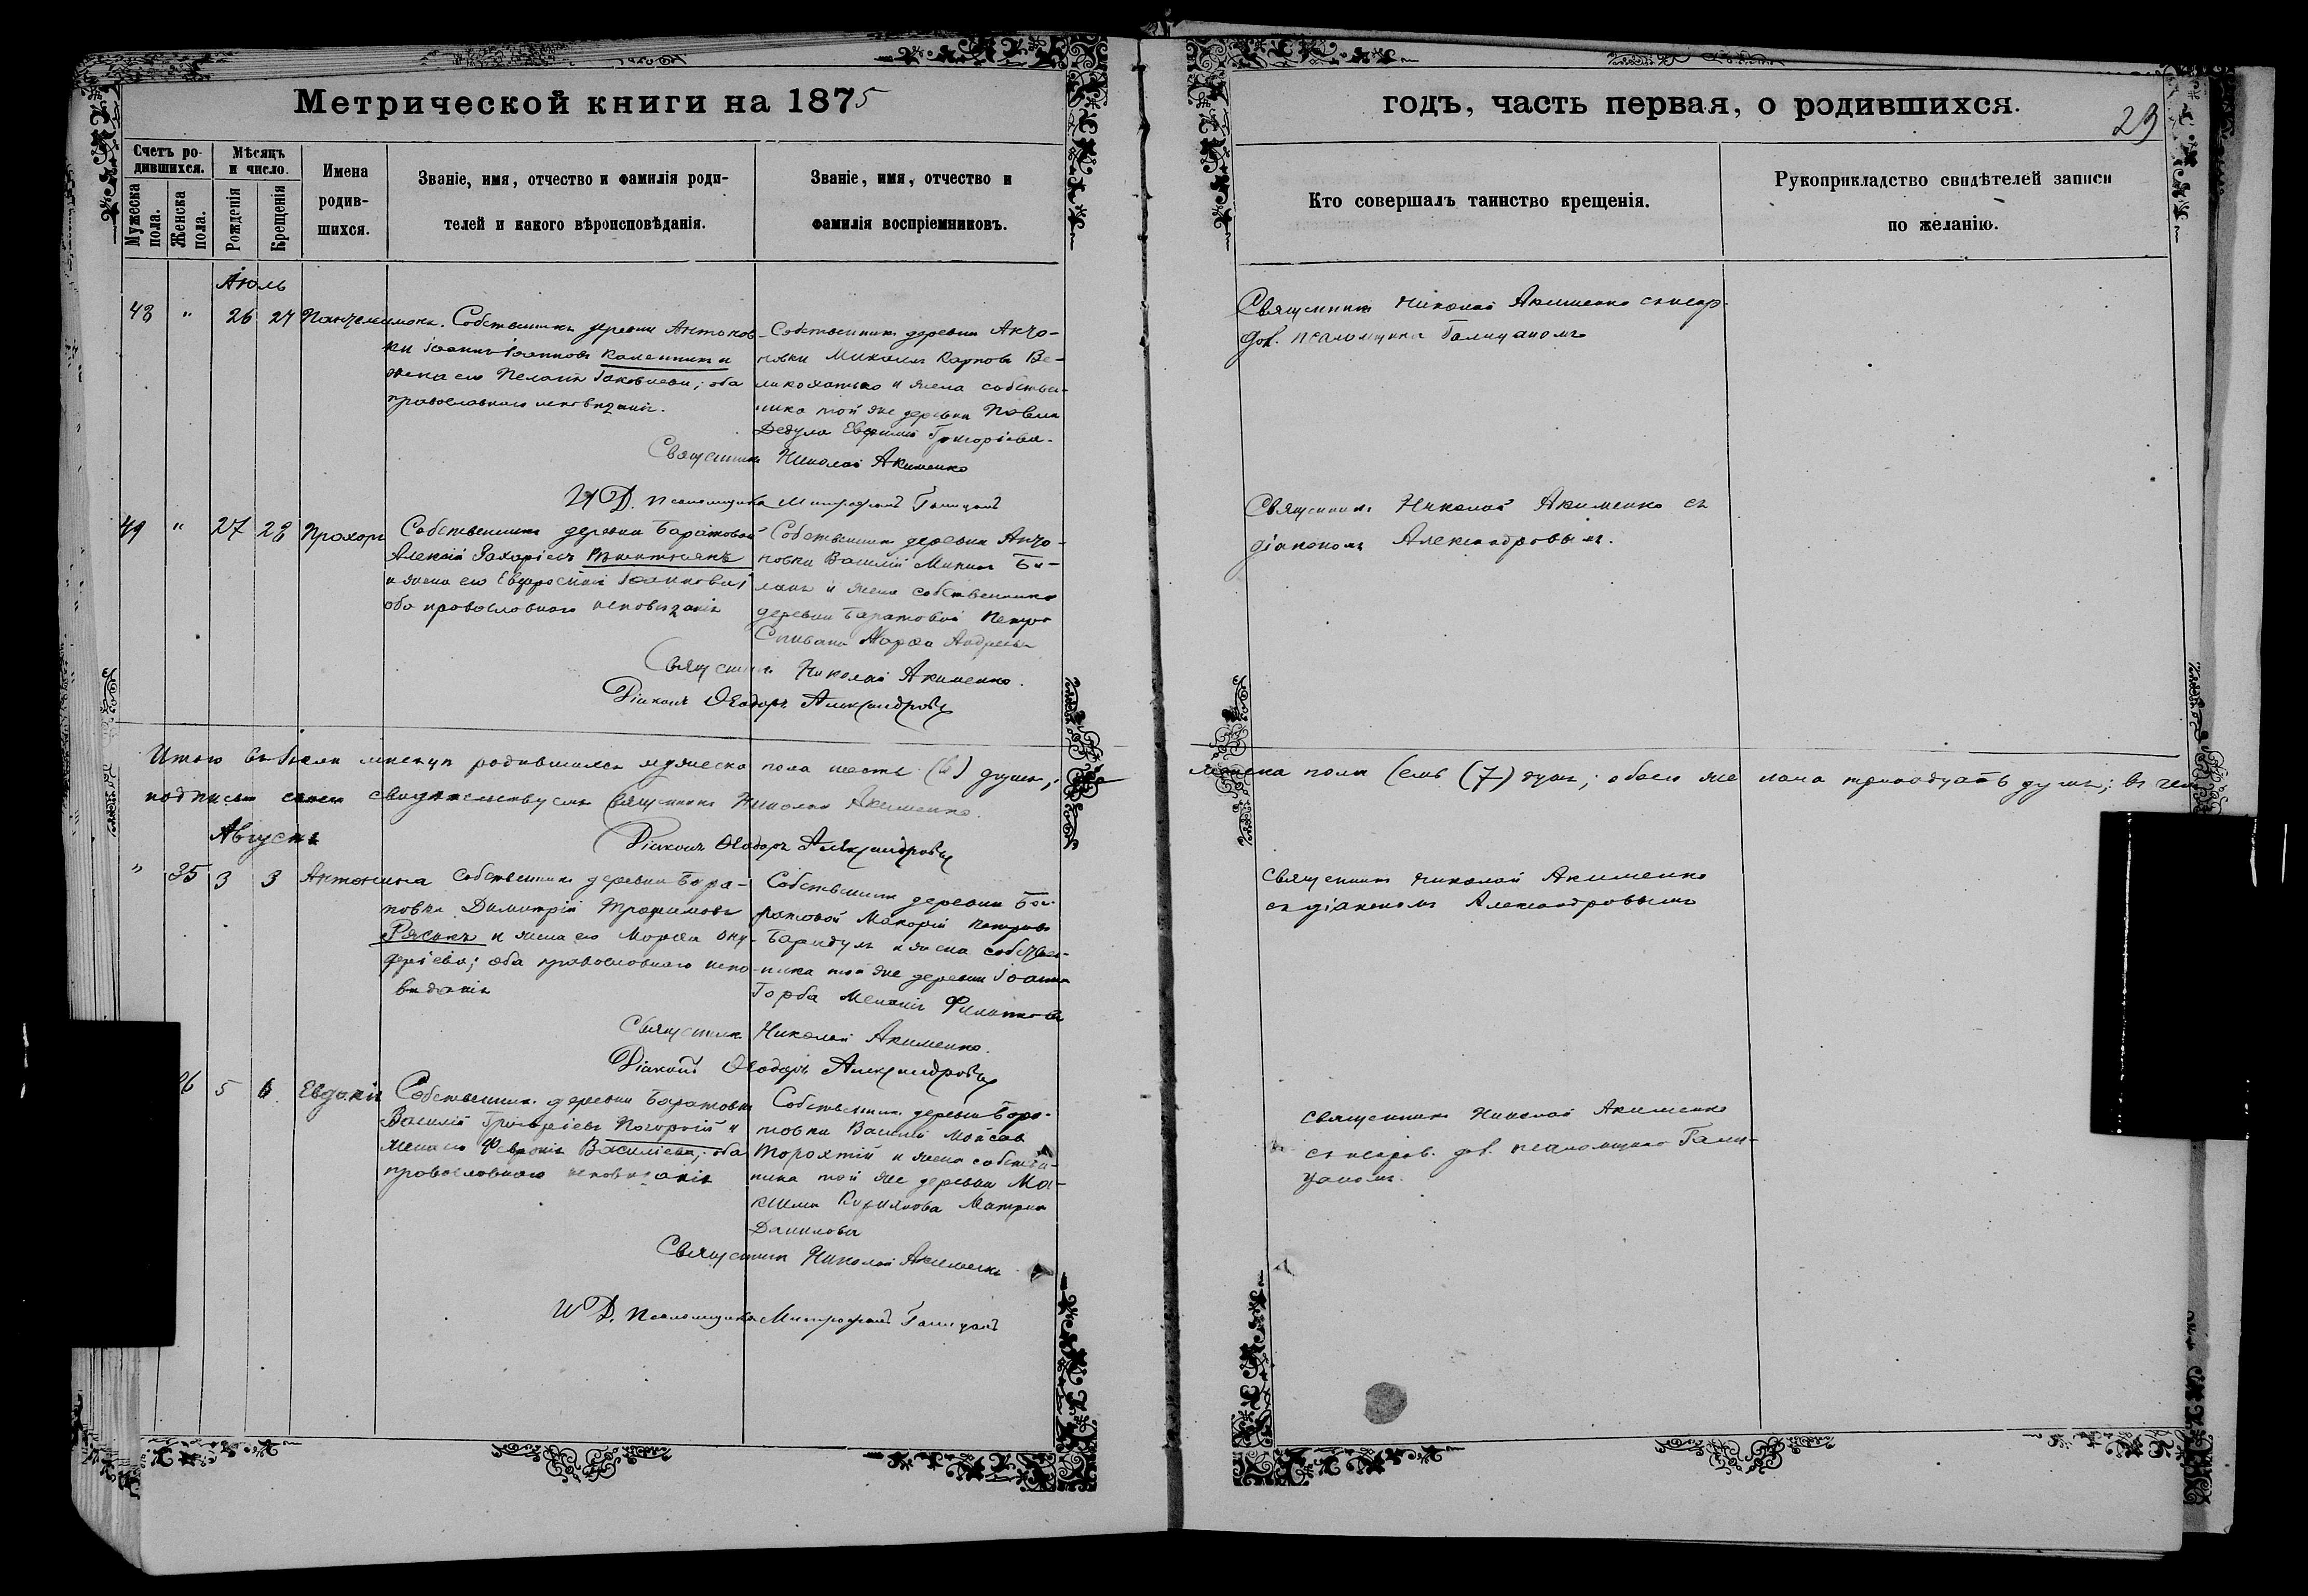 Метрической книги на 1875
годъ, часть первая, о родившихся.
29
Счетъ родившихся.
Мужеска пола.
Женска пола.
Мѣсяцъ и число.
Рожденія
Крещенія
Имена родившихся.
Званіе, имя, отчество и фамилія родителей и какого вѣроисповѣданія.
Званіе, имя, отчество и фамилія воспріемниковъ.
Кто совершалъ таинство крещенія.
Рукоприкладство свидѣтелей записи по желанію.
Іюль
48 " 26 27 Пантелеимонъ.
Собственникъ деревни Антонов-
ки Іоаннъ Іоанновъ Каленикъ и
жена его Пелагія Іаковлева; оба
православнаго исповѣданія.
Собственникъ деревни Анто-
новки Михаилъ Карповъ Ве-
ликохатько и жена собствен-
ника той же деревни Павла
Дедула Евфимія Григоріева.
Священникъ Николай Акименко
И Д. псаломщика Митрофанъ Галицанъ
Священникъ Николай Акименко съ испр.
дол. псаломщика Галицаномъ
49 " 27 28 Прохоръ
Собственникъ деревни Баратовой
Алексій Захаріевъ
и жена его Евфросинія Іоаннова;
оба православнаго исповѣданія
Собственникъ деревни Анто-
новки Василій Б-
ланъ и жена собственника
деревни Баратовой Петра
Спивака Марѳа Андреева
Священникъ Николай Акименко.
Діаконъ Ѳеодоръ Александровъ
Священникъ Николай Акименко съ
діакономъ Александровымъ.
Итого въ Іюлѣ мѣсяцѣ родившихся мужеска пола шесть (6) душъ;
женска пола семь (7) душъ; обоего же пола тринадцать душъ; въ чемъ
подписью своею свидѣтельствуемъ Священникъ Николай Акименко.
Діаконъ Ѳеодоръ Александровъ
Августъ
" 35 3 3 Антонина
Собственникъ деревни Бара-
товки Димитрій Трофимовъ
Рясикъ и жена его Марѳа Ону-
фріева; оба православнаго испо-
вѣданія
Собственникъ деревни Ба-
ратовой Макарій Петровъ
и жена собствен-
ника той же деревни Іоанна
Горба Меланія Филиппова
Священникъ Николай Акименко.
Діаконъ Ѳеодоръ Александровъ
Священникъ Николай Акименко
съ діакономъ Александровымъ
36 5 6 Евдокія
Собственникъ деревни Баратовки
Василій Григоріевъ Погорѣлій и
жена его Февронія Василіева; оба
православнаго исповѣданія
Собственникъ деревни Бара-
товки Василій Мойсеев
Торохтій и жена собствен-
ника той же деревни Ма-
ксима Курилова Матрона
Данилова
Священникъ Николай Акименко
И Д. псаломщика Митрофанъ Галицанъ
Священникъ Николай Акименко
съ исправ. дол. псаломщика Гали-
цаномъ.